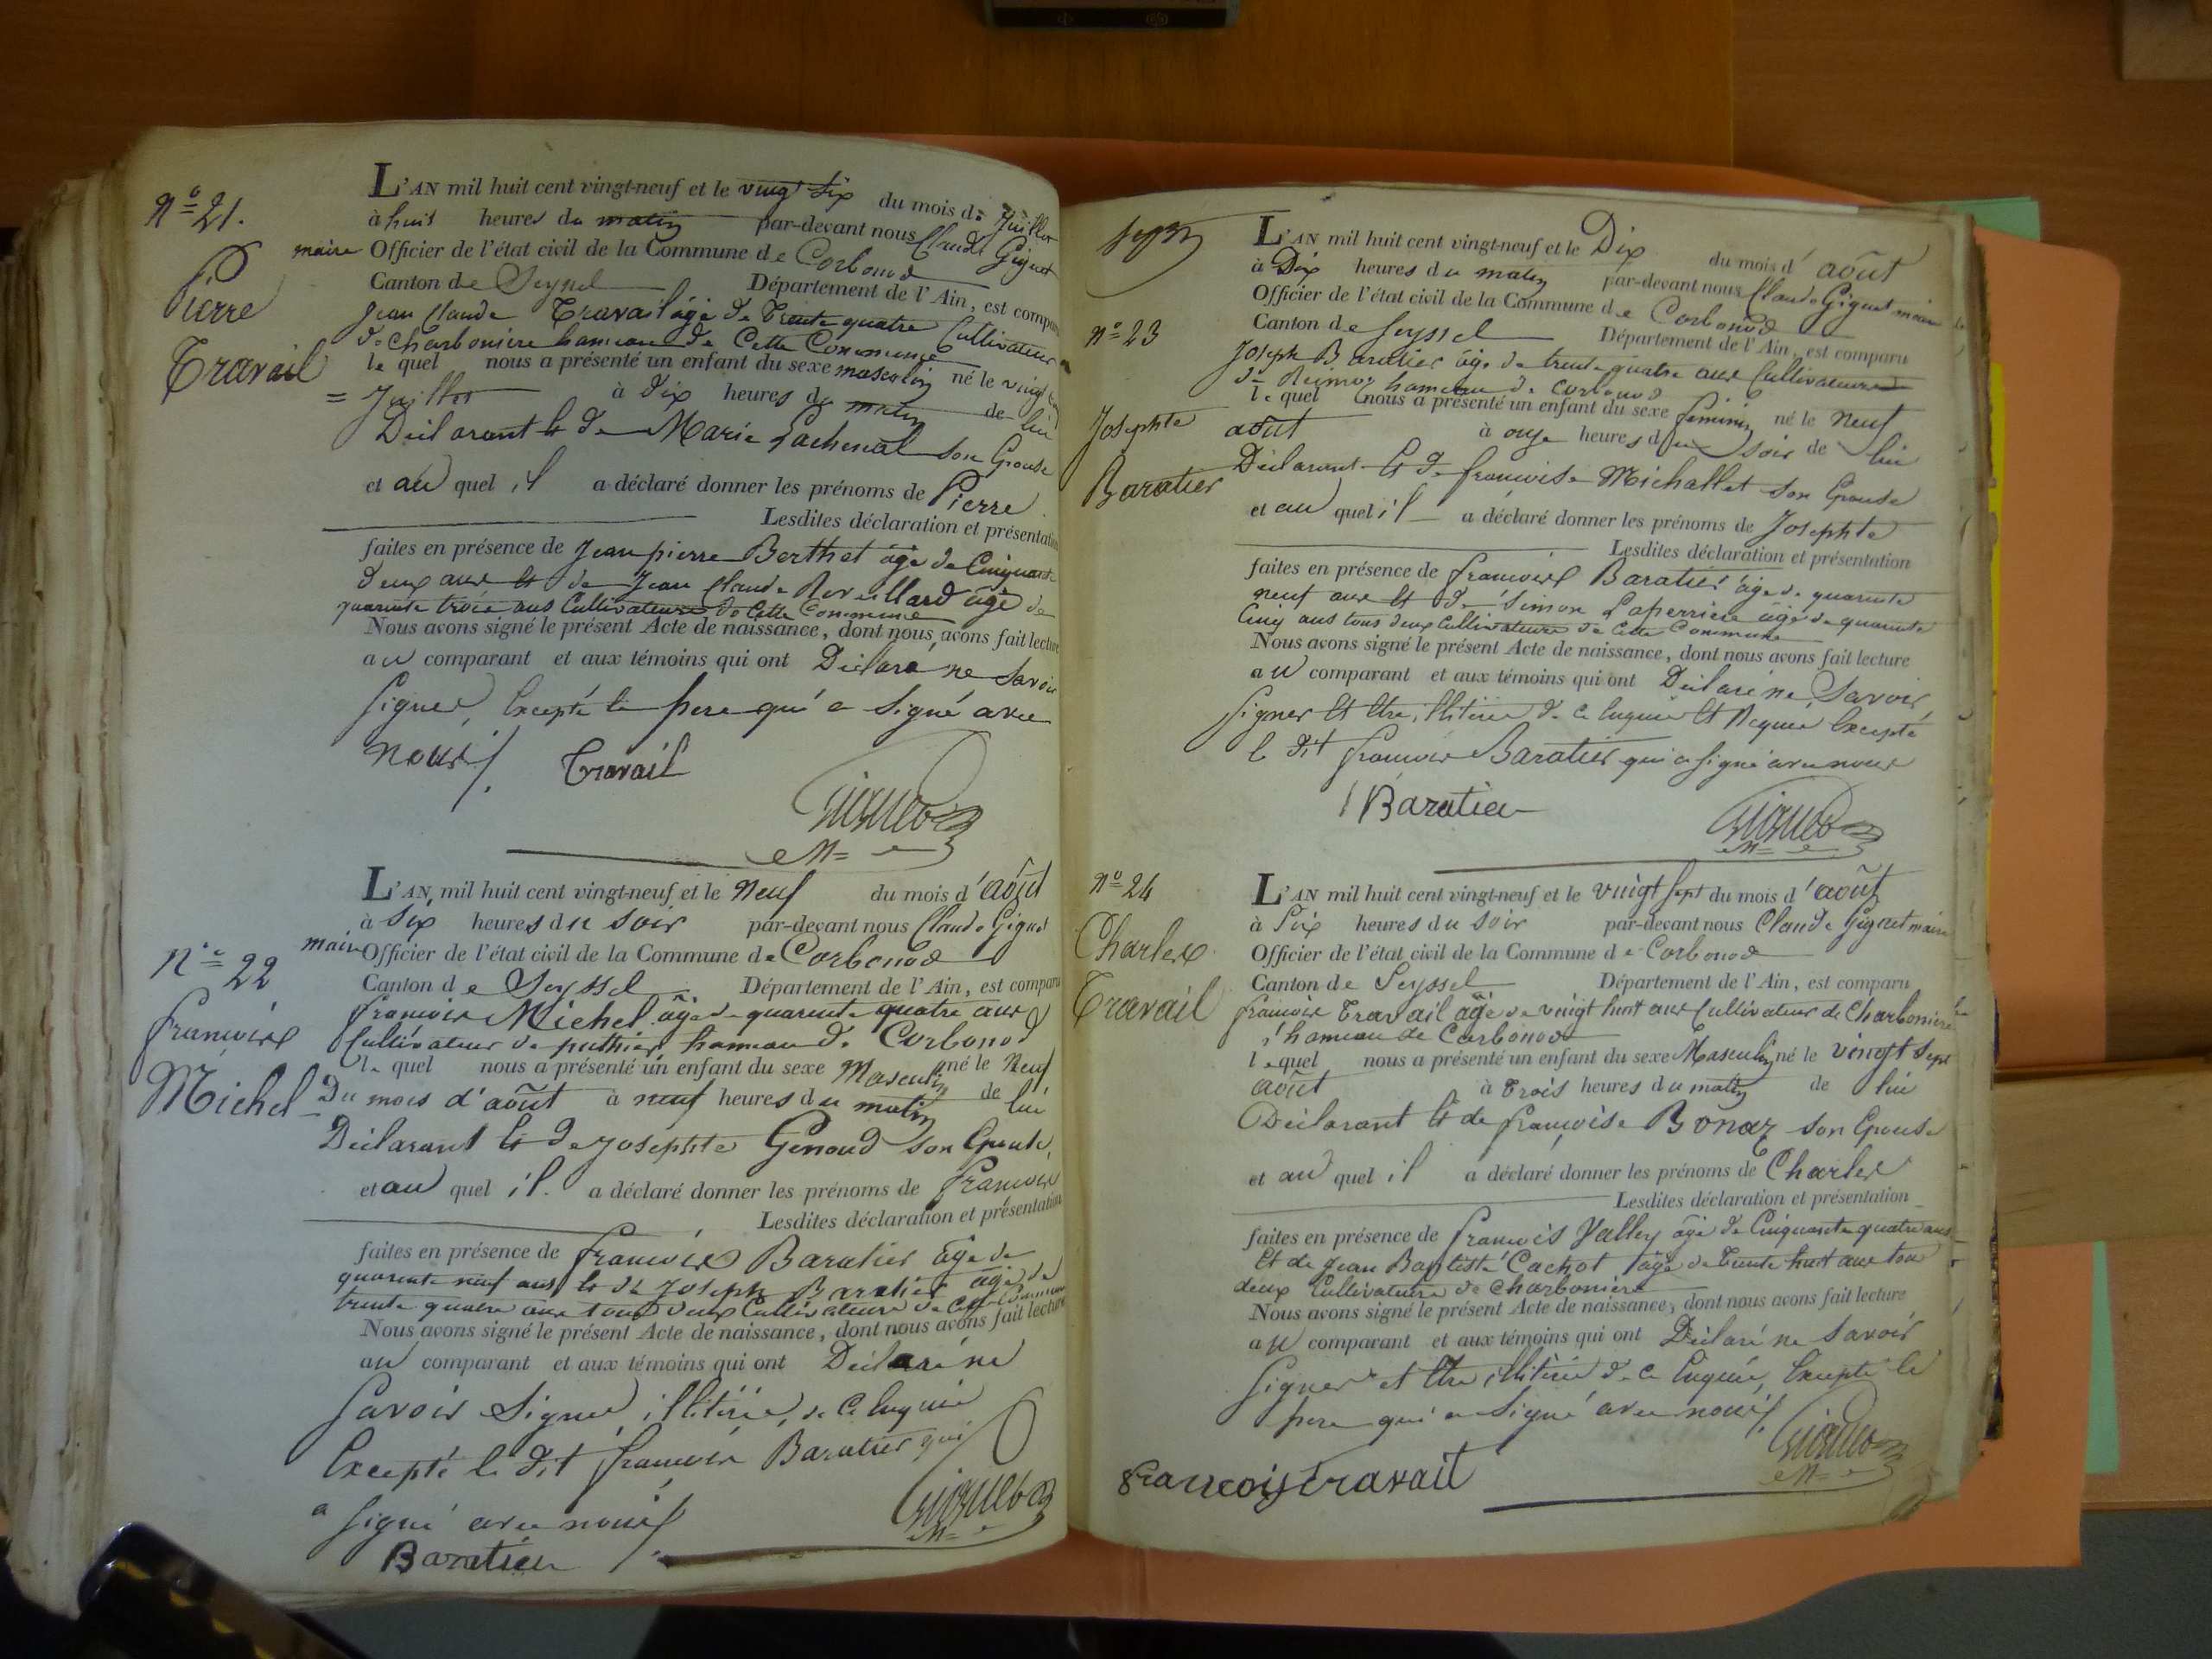 N° 21.
Pierre
Travail
L'AN mil huit cent vingt-neuf et le vingt Six du mois de Juillet
à huit heures du matin par-devant nous Claude Giguet
maire Officier de l'état civil de la Commune de Corbonod
Canton de Seyssel Département de l'Ain, est comparu
Jean Claude Travail âgé de Trente quatre Cultivateur
de Charboniere hameau de Cette Commune
lequel nous a présenté un enfant du sexe masculin né le vingt
= Juillet à Dix heures du matin de lui
Déclarant Et de Marie Lachenal son Epouse
et au quel il a déclaré donner les prénoms de Pierre
Lesdites déclaration et présentation
faites en présence de Jean pierre Berthet âgé de Cinquante
Deux ans Et de Jean Claude Reveillard âgé de
quarante trois ans Cultivateurs de Cette Commune
Nous avons signé le présent Acte de naissance, dont nous avons fait lecture
au comparant et aux témoins qui ont Déclaré ne Savoir
Signer, Excepté le pere qui a Signé avec
nous/. Travail
Giguet
M=
N° 22
francois
Michel
L'AN mil huit cent vingt-neuf et le Neuf du mois d'août
à Six heures du soir par-devant nous Claude Giguet
maire Officier de l'état civil de la Commune de Corbonod
Canton de Seyssel Département de l'Ain, est comparu
francois Michel âgé de quarente quatre ans
Cultivateur de puthier hameau de Corbonod
le quel nous a présenté un enfant du sexe Masculin né le Neuf
Du mois d'août à neuf heures du matin de lui
Déclarant Et de Josephte Genoud son Epouse,
et au quel il a déclaré donner les prénoms de francois
Lesdites déclaration et présentation
faites en présence de francois Baratier âgé de
quarente neuf ans Et de Joseph Baratier âgé de
trente quatre ans tous deux Cultivateurs de Cette Commune
Nous avons signé le présent Acte de naissance, dont nous avons fait lecture
au comparant et aux témoins qui ont Déclaré ne
Savoir Signer illitéré, de Ce Enquis
Excepté le dit francois Baratier qui
a Signé avec nous/.
Baratier
Giguet
M=
N° 23
Josephte
Baratier
L'AN mil huit cent vingt-neuf et le Dix du mois d'août
à Dix heures du matin par-devant nous Claude Giguet maire
Officier de l'état civil de la Commune de Corbonod
Canton de Seyssel Département de l'Ain, est comparu
Joseph Baratier âgé de trente quatre ans Cultivateur
hameau de Corbonod
le quel nous a présenté un enfant du sexe féminin né le Neuf
août à onze heures du soir de lui
Déclarant Et de francoise Michallet son Epouse
et au quel il a déclaré donner les prénoms de Josephte
Lesdites déclaration et présentation
faites en présence de francois Baratier âgé de quarente
neuf ans Et de Simon Laperriere âgé de quarente
Cinq ans tous deux Cultivateurs de Cette Commune
Nous avons signé le présent Acte de naissance, dont nous avons fait lecture
au comparant et aux témoins qui ont Déclaré ne Savoir
Signer Et être illitéré de Ce Enquis Et Requis Excepté
le dit francois Baratier qui a Signé avec nous
Baratier
Giguet
M=
N° 24
Charles
Travail
L'AN mil huit cent vingt-neuf et le vingt Sept du mois d'août
à Six heures du soir par-devant nous Claude Giguet maire
Officier de l'état civil de la Commune de Corbonod
Canton de Seyssel Département de l'Ain, est comparu
francois Travail âgé de vingt huit ans Cultivateur de Charboniere
hameau de Corbonod
lequel nous a présenté un enfant du sexe Masculin né le vingt Sept
août à Trois heures du matin de lui
Déclarant Et de françoise Bonaz son Epouse
et au quel il a déclaré donner les prénoms de Charles
Lesdites déclaration et présentation
faites en présence de francois Valley âgé de Cinquante quatre ans
Et de Jean Baptiste Cachot âgé de Trente huit ans tous
deux Cultivateurs de Charboniere
Nous avons signé le présent Acte de naissance, dont nous avons fait lecture
au comparant et aux témoins qui ont Déclaré ne Savoir
Signer et être illitéré de Ce Enquis, Excepté le
pere qui a Signé avec nous/.
francois travail
Giguet
M=